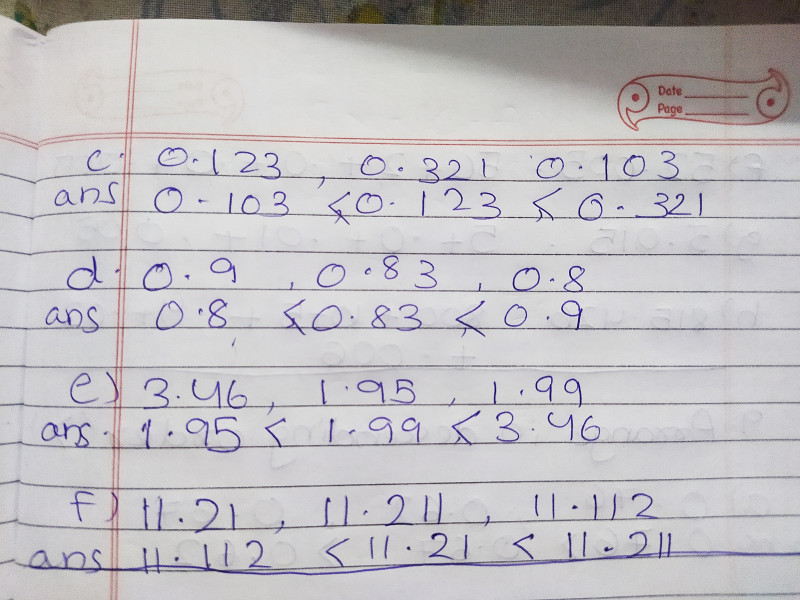 Date
Page
c. 0.123 , 0.321 0.103
ans 0.103 < 0.123 < 0.321
d. 0.9 , 0.83 , 0.8
ans 0.8 < 0.83 < 0.9
e) 3.46, 1.95, 1.99
ans. 1.95 < 1.99 < 3.46
f) 11.21 , 11.211 , 11.112
ans 11.112 < 11.21 < 11.211